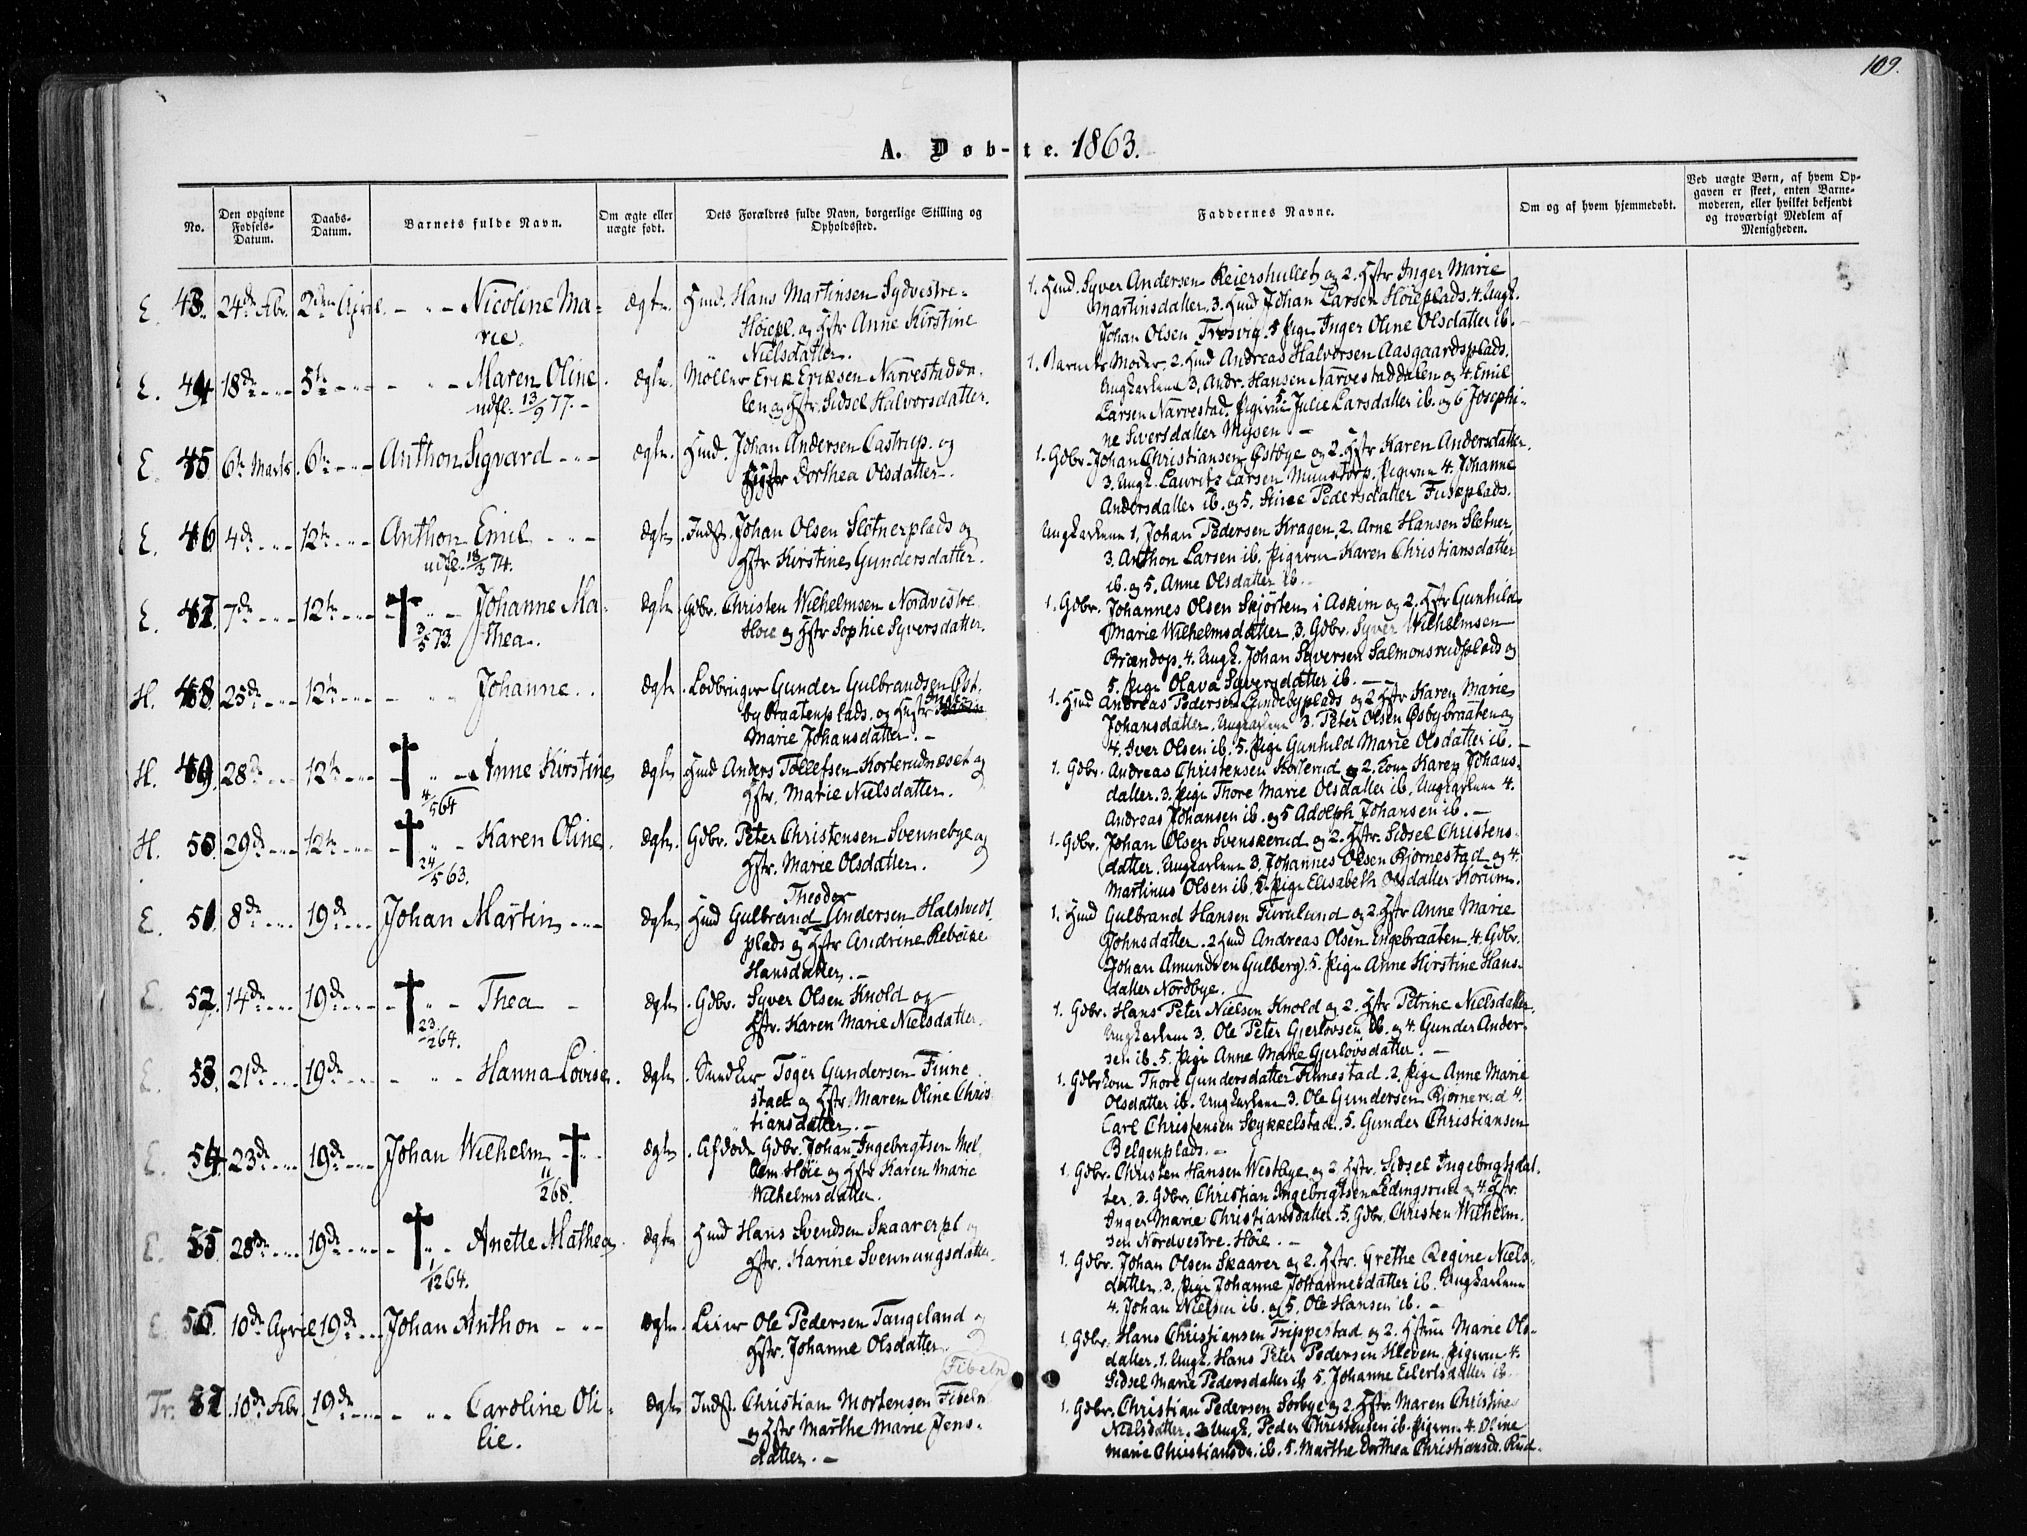 109.
A. Døb-te. 1863.
No.
Den opgivne Fødsels-Datum.
Daabs-Datum.
Barnets fulde Navn.
Om ægte eller uægte født.
Dets Forældres fulde Navn, borgerlige Stilling og Opholdssted.
Faddernes Navne.
Om og af hvem hjemmedøbt.
Ved uægte Børn, af hvem Op-
gaven er skeet, enten Barne-
moderen, eller hvilket bekjendt
og troværdigt Medlem af
Menigheden.
E. 43. 24de Febr. 2den April. - " - Nicoline Ma-
rie.
Ægte. Husm. Hans Martinsen Sydvestre-
Høiepl. og Hstr Anne Kirstine
Nielsdatter.
1. Husm. Syver Andersen Reiershullet og 2. Hstr Inger Marie
Martinsdatter. 3. Husm Johan Larsen Høieplads. 4. Ungk.
Johan Olsen Trøsvig. 5 Pige Inger Oline Olsdatter ib.
E. 44 18de 5te - " - Maren Oline.
udfl. 13/9 77. -
Ægte. Møller Erik Eriksen Narvestadda-
len og Hstr. Sidsel Halvorsdatter.
1. Barnets Moder. 2. Husm Andreas Halvorsen Aasgaardsplads.
Ungkarlene 3. Andr. Hansen Narvestaddalen og 4. Emil
Larsen Narvestad. Pigerne 5 Julie Larsdatter ib. og 6 Josephi-
ne Siversdatter Mysen -
E. 45 6te Marts. 6te Anthon Sigvard
Ægte. Husm. Johan Andersen Castrup. og
Hstr Dorthea Olsdatter.
1. Gdbr. Johan Christiansen Østbye og 2. Hstr Karen Andersdatter.
3. Ungk. Laurits Larsen Munstorp. Pigerne 4. Johanne
Andersdatter ib. og 5. Stine Pedersdatter Fuskeplads.
E. 46 4de 12te Anthon Emil
udfl. 18/3 74.
Ægte. Indst. Johan Olsen Sletnerplads og
Hstr Kirstine Gundersdatter.
Ungkarlene 1. Johan Pedersen Kragen, 2. Arne Hansen Sletner
3. Anthon Larsen ib. Pigerne Karen Christiansdatter
ib. og 5. Anne Olsdatter ib.
E. 47. 7de 12te † " - Johanne Ma-
3/5 73. thea.
Ægte. Gdbr. Christen Wilhelmsen Nordvestre
Høie og Hstr Sophie Syversdatter.
1. Gdbr. Johannes Olsen Skjørten i Askim og 2. Hstr Gunhild
Marie Wilhelmsdatter. 3. Gdbr. Syver Wilhelmsen
Brændop. 4. Ungk. Johan Syversen Salmonsrudplads og
5. Pige Olava Syversdatter ib. -
H. 48. 25de 12te " " Johanne.
Ægte. Lodbruger Gunder Gulbrandsen Øst-
bybraatenplads. og Hustr
Marie Johansdatter. -
1. Husm Andreas Pedersen Lundebyplads og 2 Hstr Karen Marie
Johansdatter. Ungkarlene 3. Peter Olsen Østbybraaten og
4. Iver Olsen ib. 5. Pige Gunhild Marie Olsdatter ib. -
H. 49. 28de 12te † " - Anne Kirstine
4/5 64
Ægte. Husm Anders Tollefsen Korterudnæset og
Hstr. Marie Nielsdatter.
1. Gdbr. Andreas Christensen Korterud og 2. Kone Karen Johans-
datter. 3. Pige Thore Marie Olsdatter ib. Ungkarlene 4.
Andreas Johansen ib. og 5 Adolph Johansen ib. -
H. 50. 29de 12te † " Karen Oline.
24/5 63.
Ægte. Gdbr. Peter Christensen Svennebye og
Hstr. Marie Olsdatter.
1. Gdbr. Johan Olsen Svenskerud og 2. Hstr. Sidsel Christens-
datter. Ungkarlene 3. Johannes Olsen Bjørnestad og 4.
Martinus Olsen ib. 5. Pige Elisabeth Olsdatter Korum.
E. 51. 8de 19de Johan Martin
Ægte Husm Gulbrand Theodor Andersen Halstvedt-
plads og Hstr Andrine Rebecke
Hansdatter. -
1. Husm Gulbrand Hansen Furulund og 2. Hstr Anne Marie
Johnsdatter. 2 Husm Andreas Olsen Engebraaten. 4. Gdbr.
Johan Amundsen Gulberg. 5. Pige Anne Kirstine Hans-
datter Nordbye.
E. 52. 14de 19de † " - Thea -
23/2 64.
Ægte. Gdbr. Syver Olsen Knold og
Hstr. Karen Marie Nielsdatter.
1. Gdbr. Hans Peter Nielsen Knold og 2. Hstr Petrine Nielsdatter.
Ungkarlene 3. Ole Peter Gjerløvsen ib. og 4. Gunder Ander-
sen ib. 5. Pige Anne Marie Gjerløvsdatter. -
E. 53. 21de 19de - " - Hanna Lovise.
Ægte. Snedker Tøger Gundersen Finne-
stad og Hstr. Maren Oline Chris-
tiansdatter. -
1. Gdbrkone Thore Gundersdatter Finnestad. 2. Pige Anne Marie
Olsdatter ib. Ungkarlene 3. Ole Gundersen Bjørnerud 4.
Carl Christensen Stykkelstad. 5. Gunder Christiansen
Belgenplads. -
E. 54. 23de 19de Johan Wilhelm †
11/2 68.
Ægte. Afdøde Gdbr. Johan Ingebrigtsen Mel-
lem Høie og Hstr Karen Marie
Wilhelmsdatter.
1. Gdbr. Christen Hansen Westbye og 2. Hstr. Sidsel Ingebrigtsdat-
ter. 3. Gdbr. Christian Ingebrigtsen Ledingsrud og 4. Hstr.
Inger Marie Christiansdatter. 5. Gdbr. Christen Wilhelm-
sen Nordvestre-Høie. -
E. 55. 28de 19de † " - Anette Mathea.
1/12 64.
Ægte Husm Hans Svendsen Skaarerpl og
Hstr. Karine Svennungsdatter.
1. Gdbr. Johan Olsen Skaarer og 2. Hstr. Grethe Regine Niels-
datter. 3. Pige Johanne Johannesdatter ib. Ungkarlene
4. Johan Nielsen ib. og 5. Ole Hansen ib. -
E. 56. 10de April 19de Johan Anthon
Ægte. Leier Ole Pedersen Tangeland og
Hstr. Johanne Olsdatter.
1. Gdbr. Hans Christiansen Trippestad og 2. Hstru Marie Ols-
datter. 1. Ungk. Hans Peter Pedersen Kleven. Pigerne 4.
Sidsel Marie Pedersdatter ib 5. Johanne Eilertsdatter ib.
Tr. 57. 10de Febr. 19de - " - Caroline Oli-
lie.
Fibeln
Ægte Indst. Christian Mortensen Fibeln
og Hstr Marthe Marie Jens-
datter. -
1. Gdbr. Christian Pedersen Sørbye og 2. Hstr Maren Christine
Nielsdatter. 3 Ungk. Peder Christensen ib. Pigerne 4. Oline
Marie Christiansdr. ib. 5. Marthe Dorthea Christiansdr. Rud-